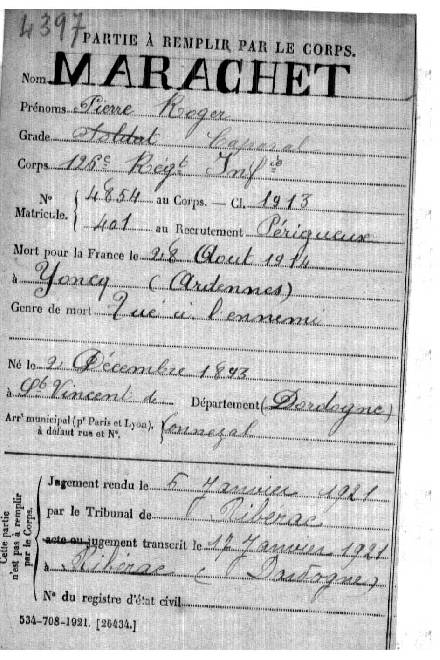 4397
PARTIE À REMPLIR PAR LE CORPS.
Nom MARACHET
Prénoms Pierre Roger
Grade Soldat Caporal
Corps 126e Régt Infie
N° Matricule. { 4854 au Corps. — Cl. 1913
401 au Recrutement Périgueux
Mort pour la France le 28 Août 1914
à Yoncq (Ardennes)
Genre de mort Tué à l'ennemi
Né le 2 Décembre 1893
à St Vincent de Département (Dordogne)
Arrt municipal (pr Paris et Lyon), à défaut rue et N°. Connezal
Cette partie n'est pas à remplir par le Corps.
Jugement rendu le 5 Janvier 1921
par le Tribunal de Ribérac
acte ou jugement transcrit le 17 Janvier 1921
à Ribérac (Dordogne)
N° du registre d'état civil
534-708-1921. [26434.]